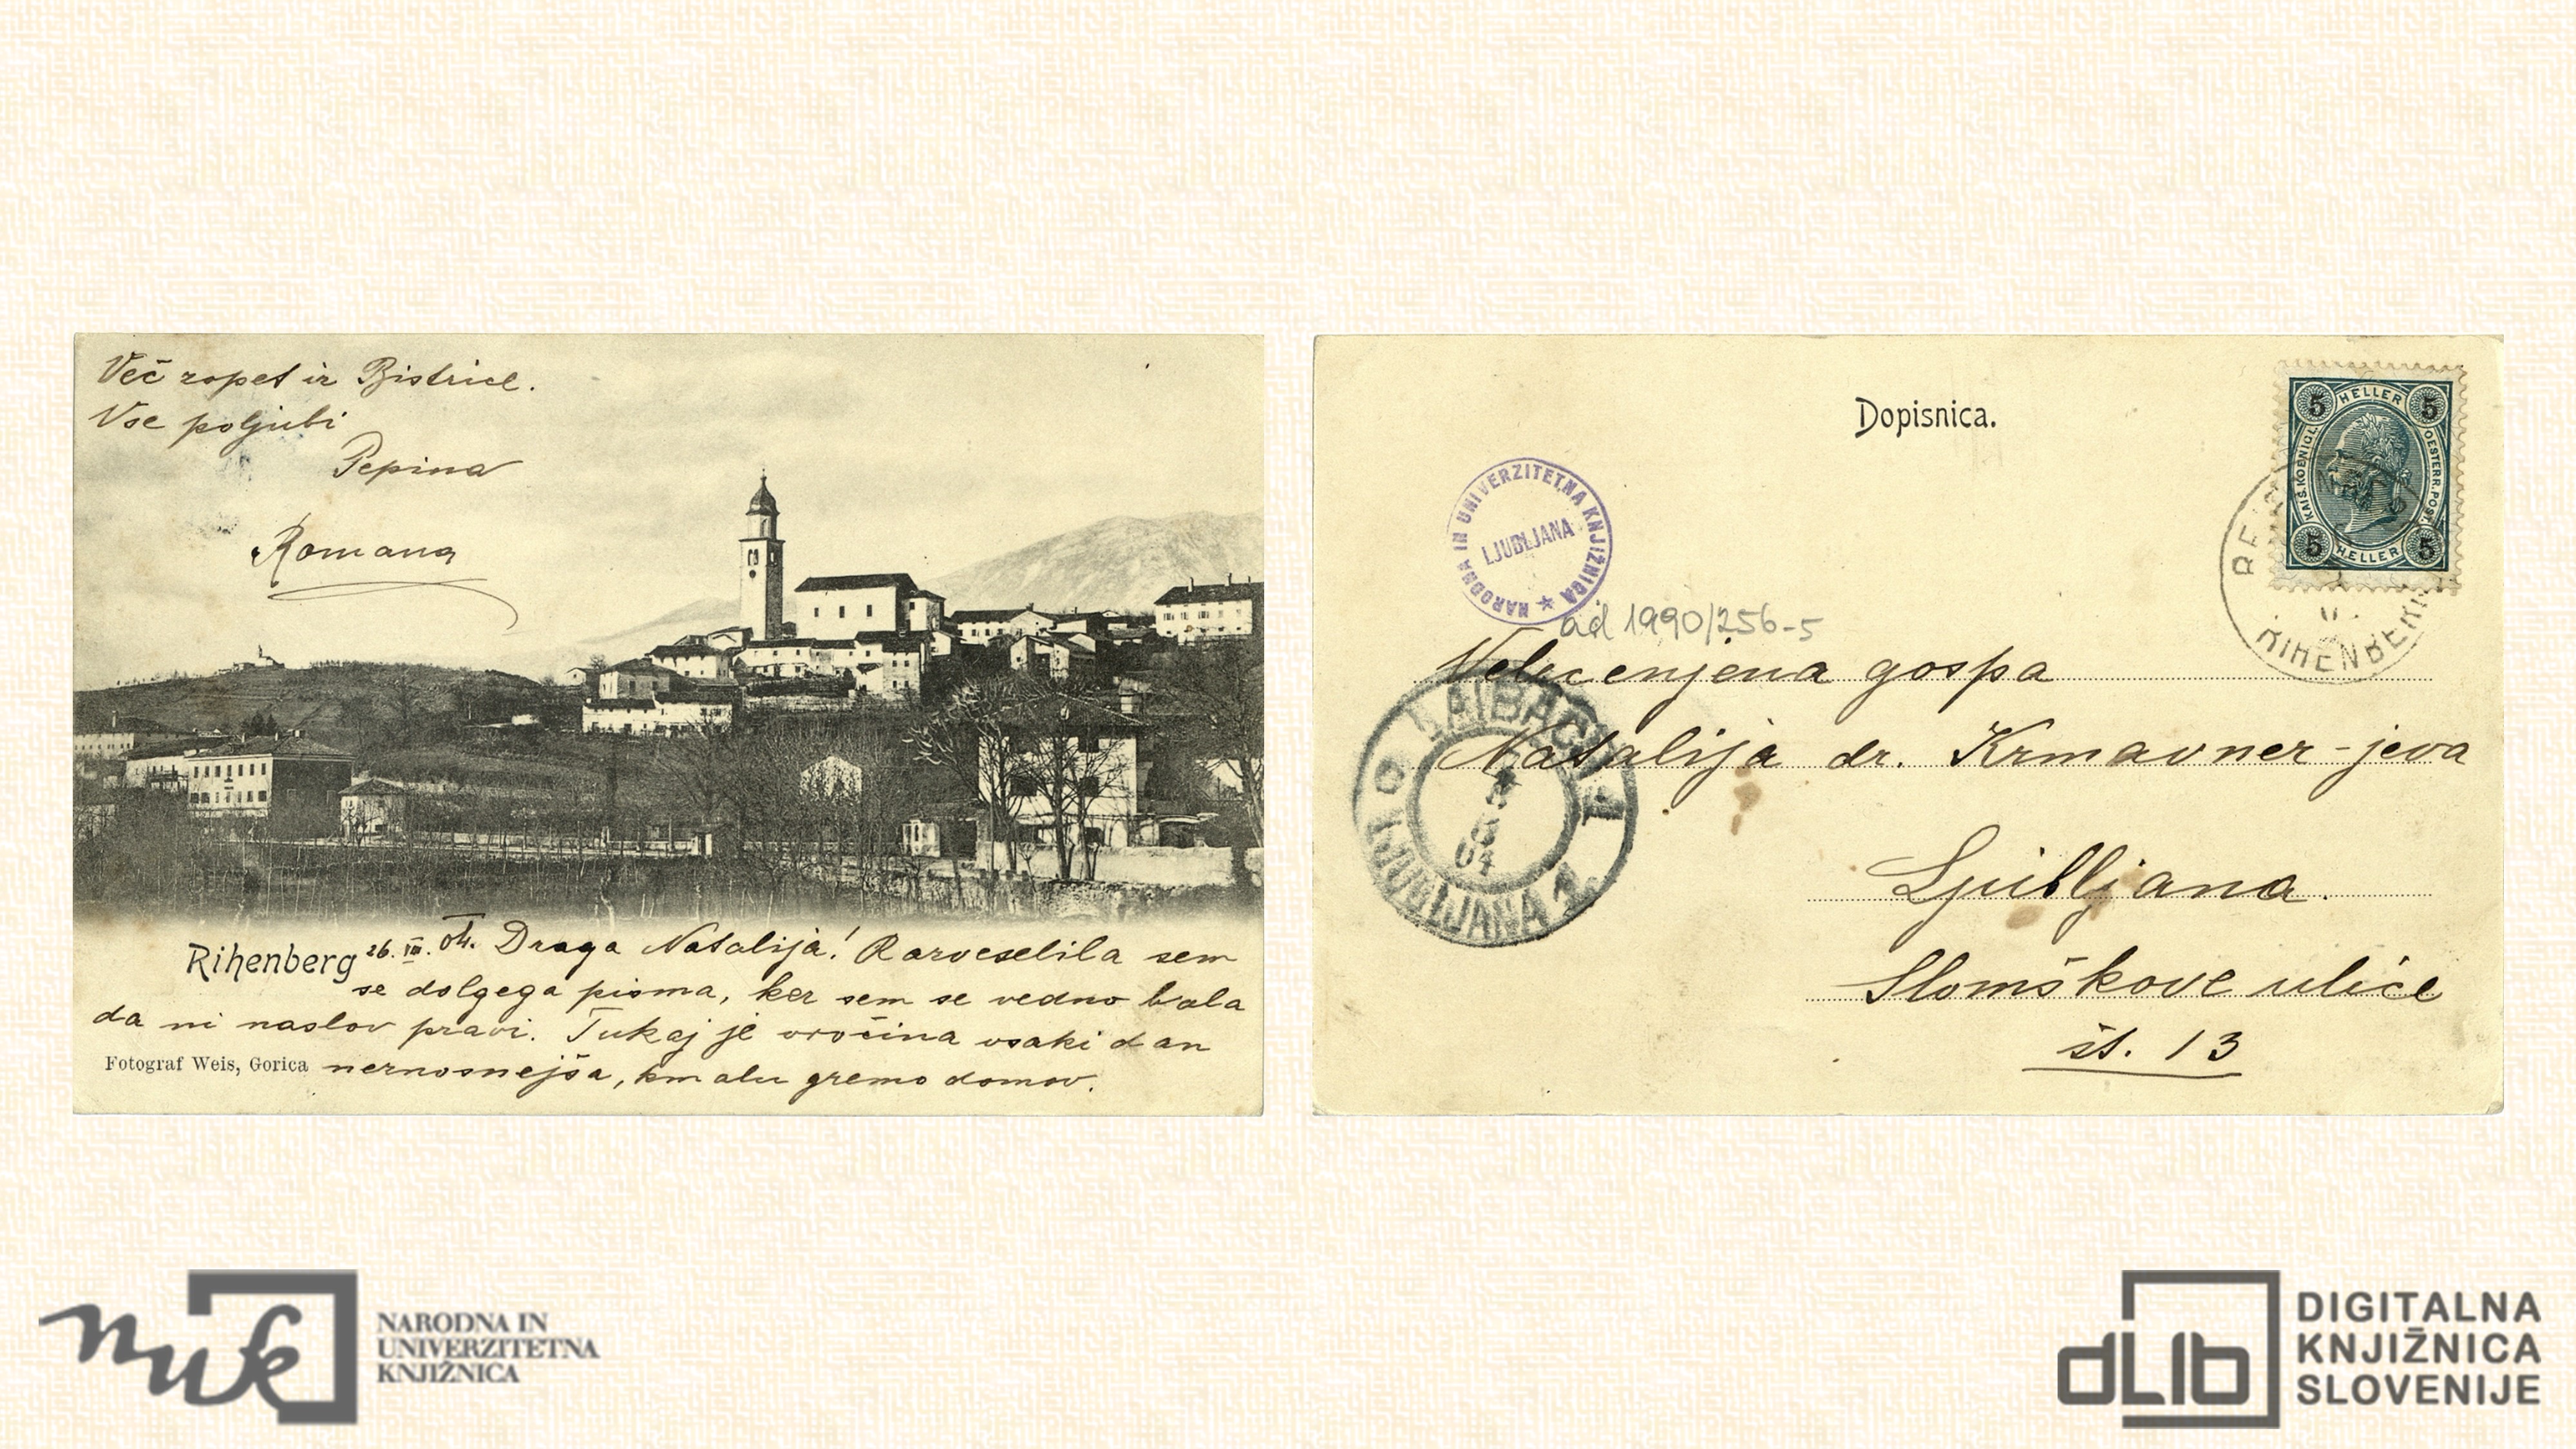 Več zopet iz Bistrice.
Vse poljubi
Pepina
Romana
Rihenberg 26. VII. 04. Draga Natalija! Razveselila sem
se dolgega pisma, ker sem se vedno bala
da ni naslov pravi. Tukaj je vročina vsaki dan
Fotograf Weis, Gorica neznosnejša, kmalu gremo domov.
Dopisnica.
5 HELLER 5
KAIS. KOENIGL. OESTERR. POST.
5 HELLER 5
RIHENBERG
NARODNA IN UNIVERZITETNA KNJIŽNICA
LJUBLJANA
ad 1990/256-5
Velecenjena gospa
Natalija dr. Krmavner-jeva
LAIBACH 1
04
LJUBLJANA 1
Ljubljana.
Slomškove ulice
št. 13
nuk
NARODNA IN
UNIVERZITETNA
KNJIŽNICA
dLib
DIGITALNA
KNJIŽNICA
SLOVENIJE